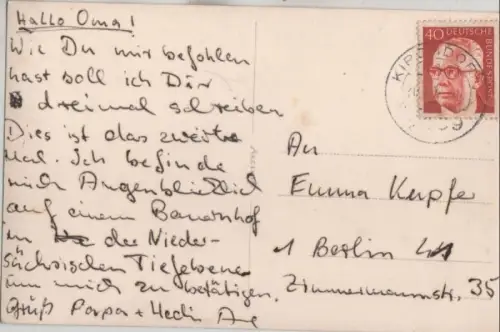 Hallo Oma!
Wie Du mir befohlen
hast soll ich Dir
dreimal schreiben
Dies ist das zweite
Mal. Ich befinde
mich Augenblicklich
auf einem Bauernhof
in der Nieder-
sächsischen Tiefebene
um mich zu betätigen.
Gruß Papa +
40
DEUTSCHE
BUNDESPOST
An
Emma Kupfer
1 Berlin 41
Zimmermannstr. 35